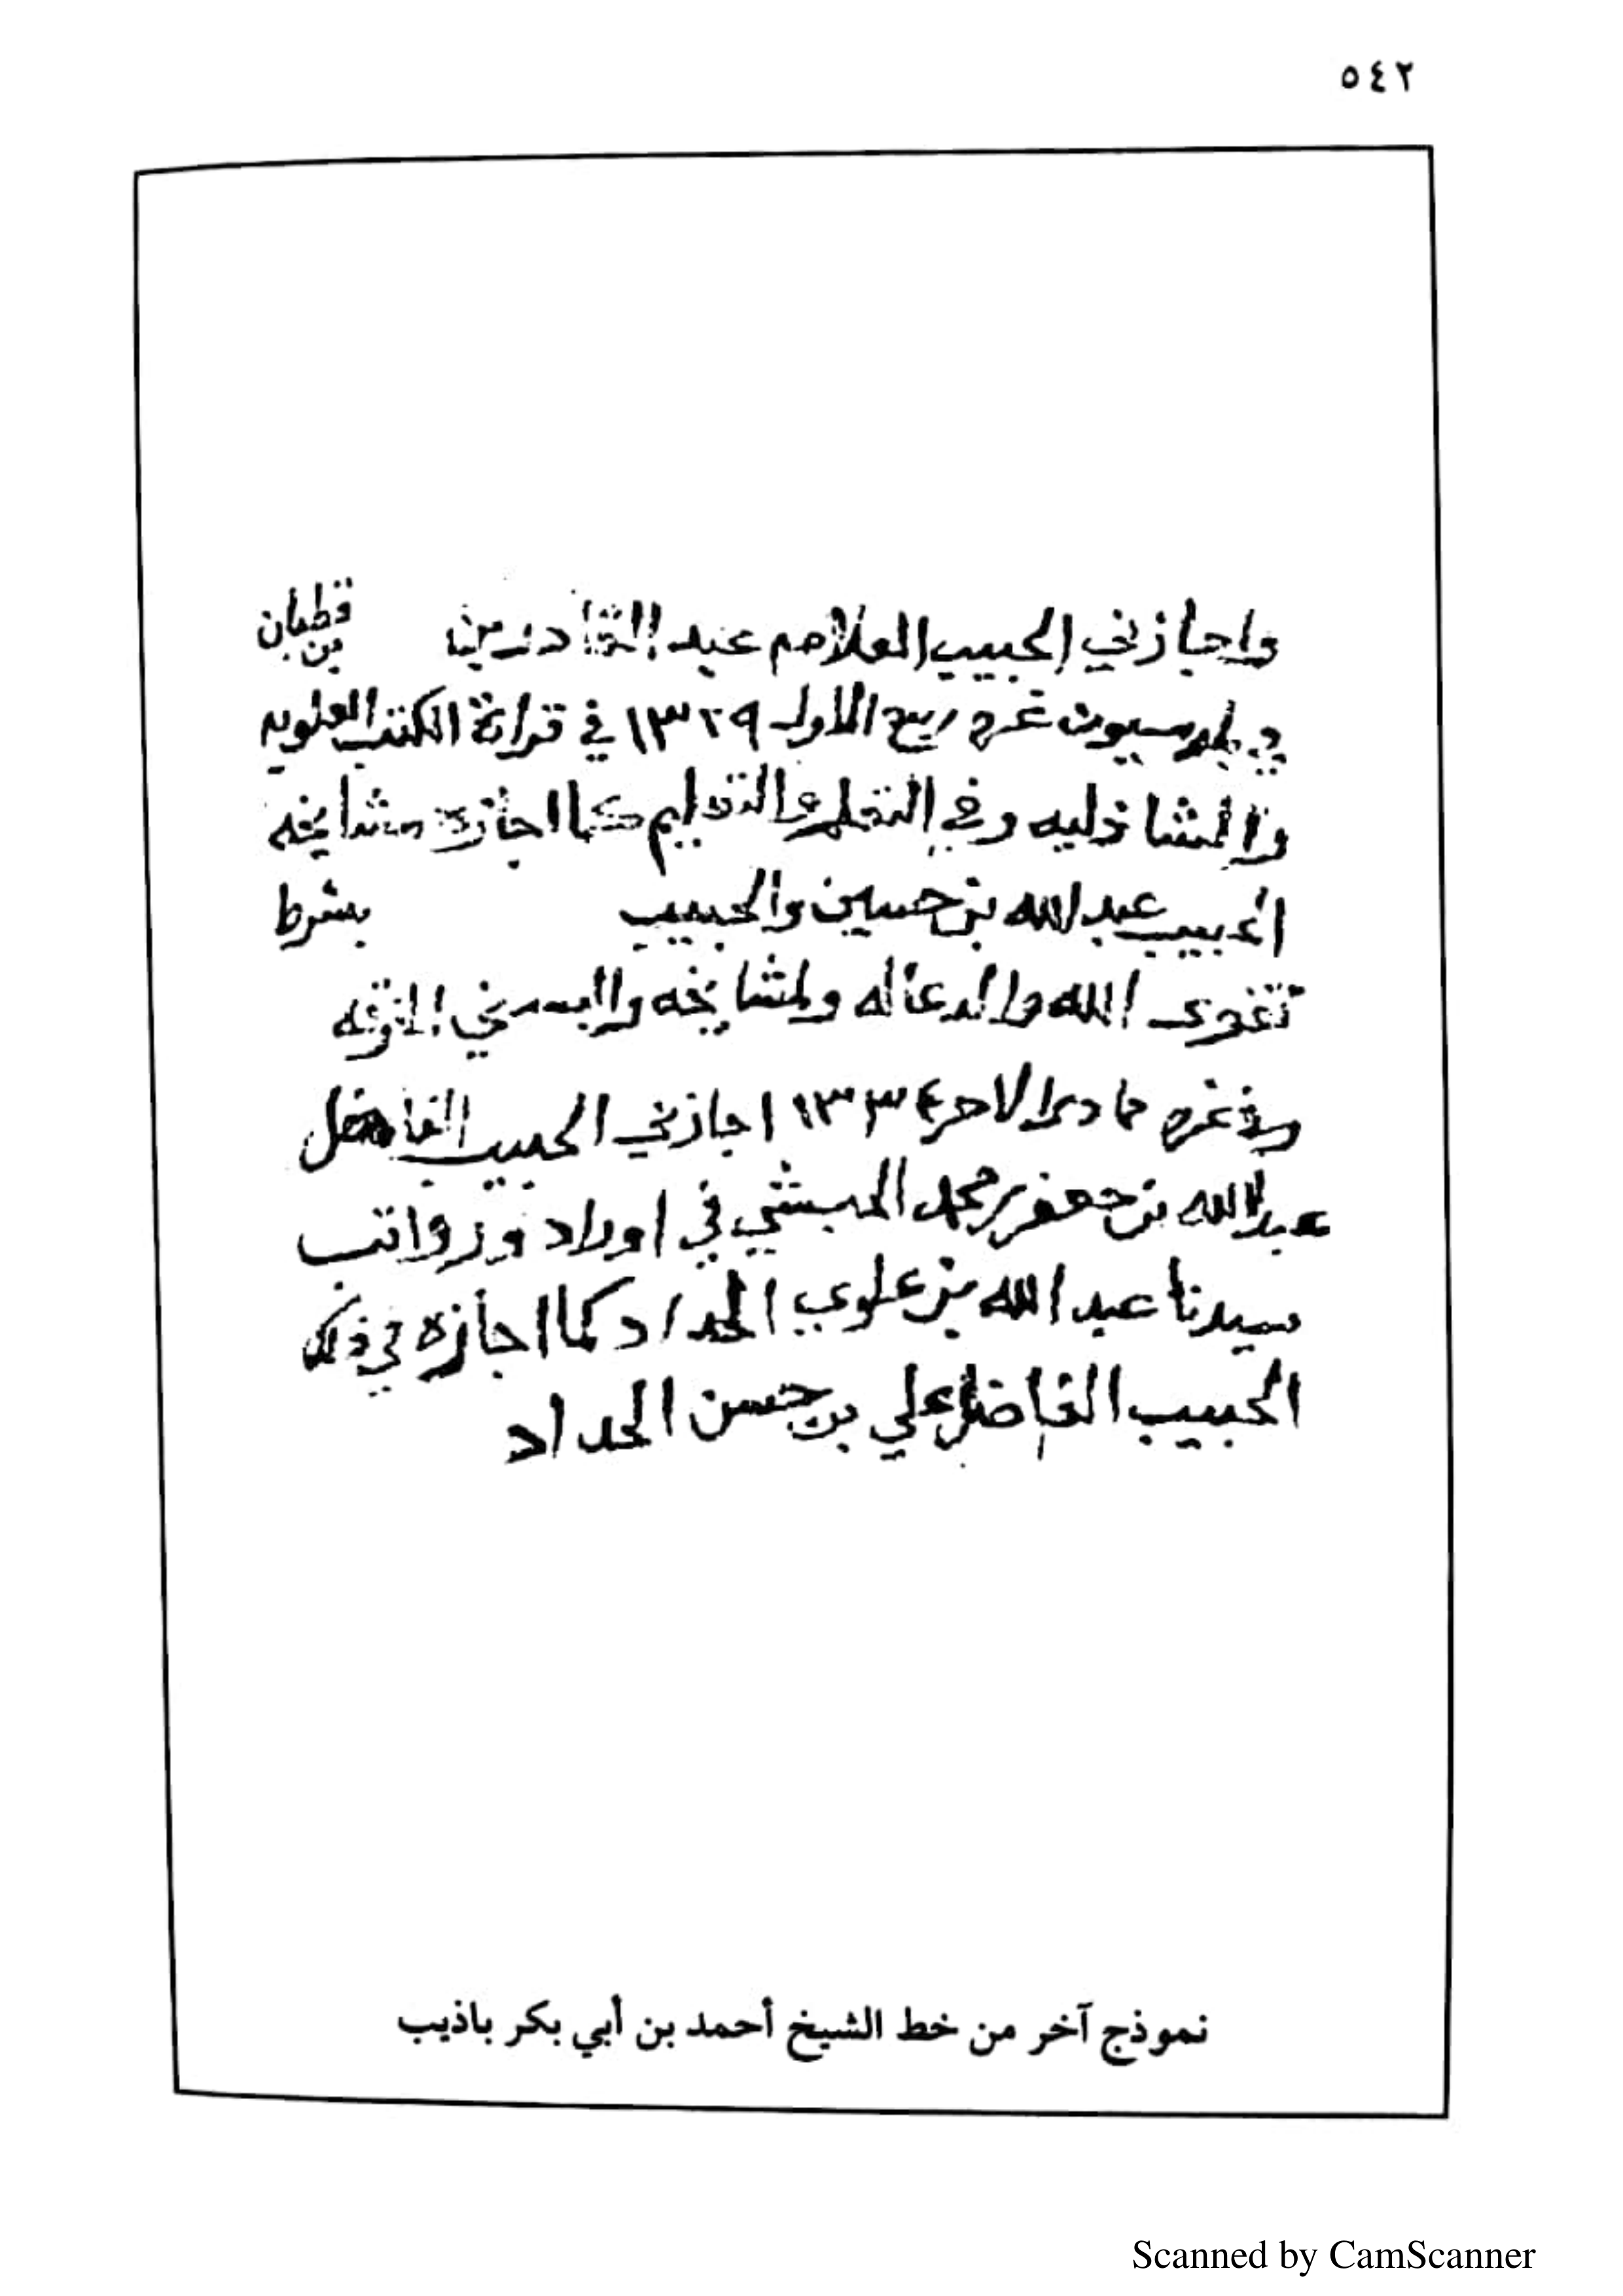 ٥٤٢
واجازني الحبيب العلامه عبد القادر بن قطبان
بن
في بلد سيون غره ربيع الاول ١٣٢٩ في قرائة الكتب العلويه
والشاذليه وفي التعلم والتعليم كما اجازه مشايخه
الحبيب عبدالله بن حسين والحبيب بشرط
تقوى الله والدعا له ولمشايخه والبسني
وفي غره جماد الاخر ١٣٣٤ اجازني الحبيب الفاضل
عبدالله بن جعفر محمد الحبشي في اوراد ورواتب
سيدنا عبد الله بن علوي الحداد كما اجازه في ذلك
الحبيب الفاضل علي بن حسن الحداد
نموذج آخر من خط الشيخ أحمد بن أبي بكر باذيب
Scanned by CamScanner